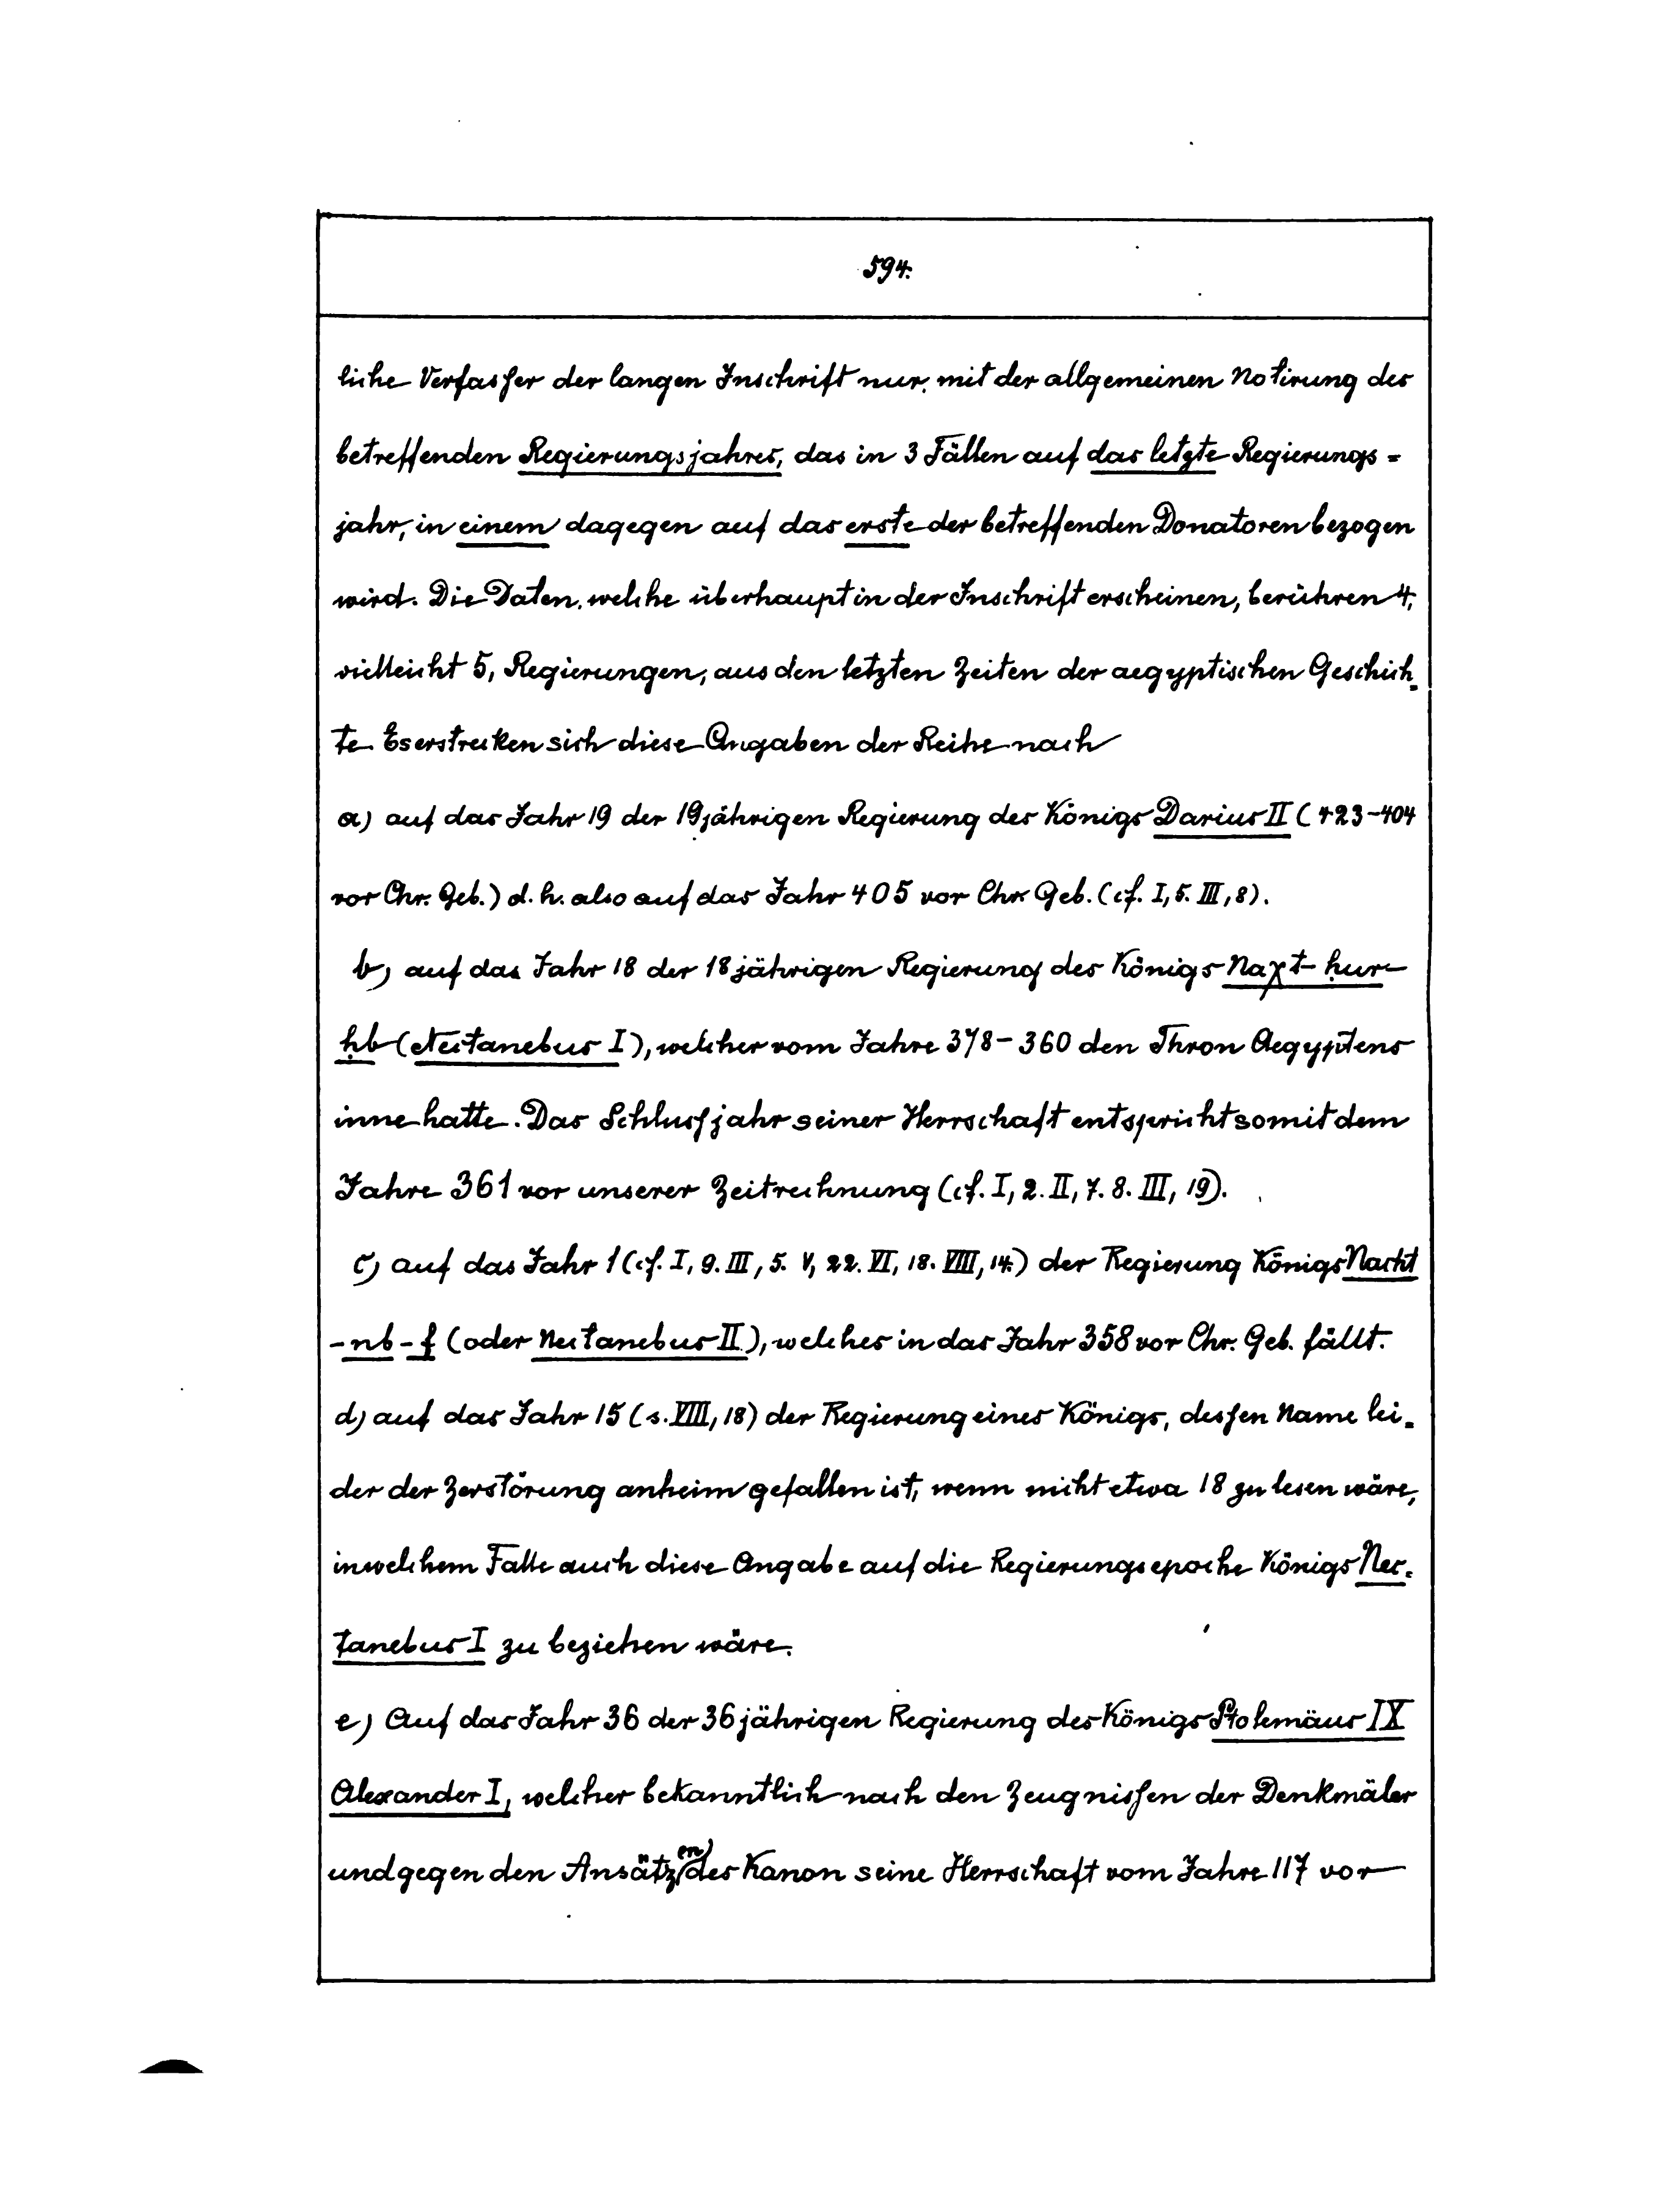 594.
liche Verfasser der langen Inschrift nur mit der allgemeinen Notirung des
betreffenden Regierungsjahres, das in 3 Fällen auf das letzte Regierungs=
jahr, in einem dagegen auf das erste der betreffenden Donatoren bezogen
wird. Die Daten, welche überhaupt in der Inschrift erscheinen, berühren 4,
vielleicht 5, Regierungen, aus den letzten Zeiten der aegyptischen Geschich=
te. Es erstrecken sich diese Angaben der Reihe nach
a) auf das Jahr 19 der 19jährigen Regierung des Königs Darius II (423–404
vor Chr. Geb.) d. h. also auf das Jahr 405 vor Chr. Geb. (cf. I, 5. III, 8).
b) auf das Jahr 18 der 18jährigen Regierung des Königs Naχt-ḥur-
ḥb (Nectanebus I), welcher vom Jahre 378–360 den Thron Aegyptens
inne hatte. Das Schlussjahr seiner Herrschaft entspricht somit dem
Jahre 361 vor unserer Zeitrechnung (cf. I, 2. II, 7. 8. III, 19).
c) auf das Jahr 1 (cf. I, 9. III, 5. V, 22. VI, 18. VIII, 14.) der Regierung Königs Nacht
-nb-f (oder Nectanebus II), welches in das Jahr 358 vor Chr. Geb. fällt.
d) auf das Jahr 15 (s. VIII, 18) der Regierung eines Königs, dessen Name lei=
der der Zerstörung anheim gefallen ist, wenn nicht etwa 18 zu lesen wäre,
in welchem Falle auch diese Angabe auf die Regierungsepoche Königs Nec=
tanebus I zu beziehen wäre.
e) Auf das Jahr 36 der 36jährigen Regierung des Königs Ptolemäus IX
Alexander I, welcher bekanntlich nach den Zeugnissen der Denkmäler
und gegen den Ansätzen des Kanon seine Herrschaft vom Jahre 117 vor